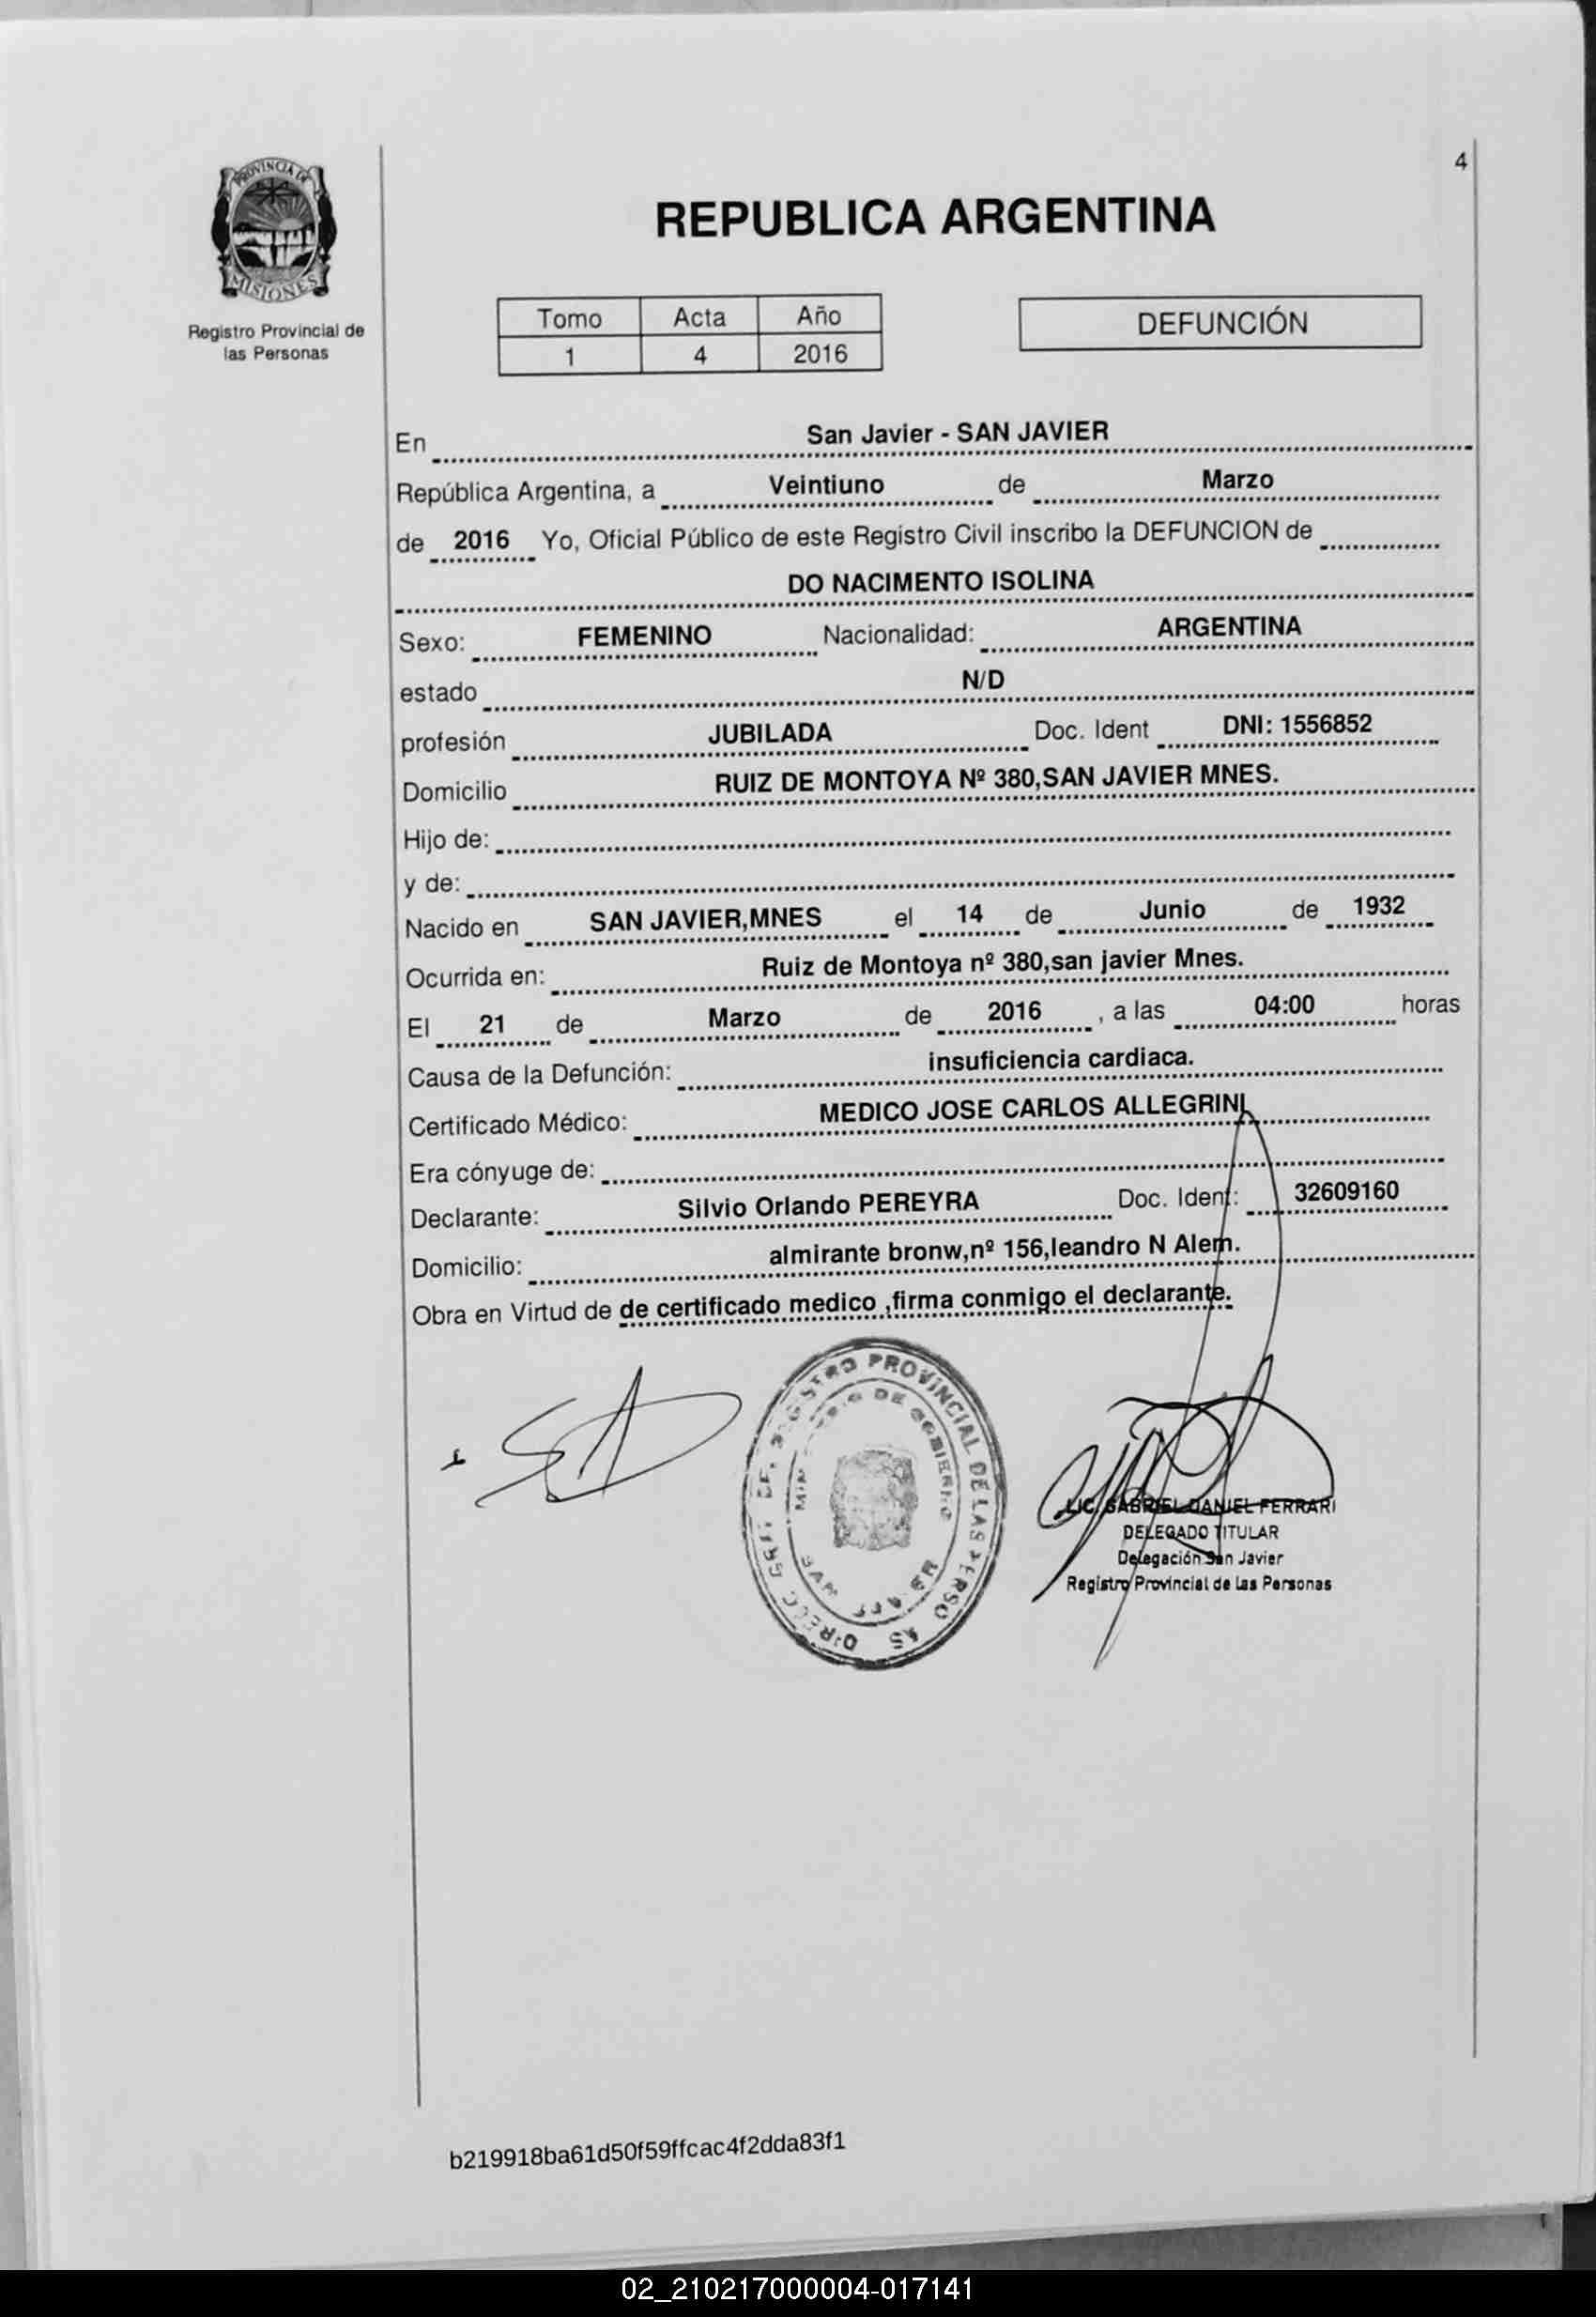 4
PROVINCIA DE
MISIONES
Registro Provincial de
las Personas
REPUBLICA ARGENTINA
Tomo Acta Año
1 4 2016
DEFUNCIÓN
En San Javier - SAN JAVIER
República Argentina, a Veintiuno de Marzo
de 2016 Yo, Oficial Público de este Registro Civil inscribo la DEFUNCION de
DO NACIMENTO ISOLINA
Sexo: FEMENINO Nacionalidad: ARGENTINA
estado N/D
profesión JUBILADA Doc. Ident DNI: 1556852
Domicilio RUIZ DE MONTOYA Nº 380,SAN JAVIER MNES.
Hijo de:
y de:
Nacido en SAN JAVIER,MNES el 14 de Junio de 1932
Ocurrida en: Ruiz de Montoya nº 380,san javier Mnes.
El 21 de Marzo de 2016 , a las 04:00 horas
Causa de la Defunción: insuficiencia cardiaca.
Certificado Médico: MEDICO JOSE CARLOS ALLEGRINI
Era cónyuge de:
Declarante: Silvio Orlando PEREYRA Doc. Ident: 32609160
Domicilio: almirante bronw,nº 156,leandro N Alem.
Obra en Virtud de de certificado medico ,firma conmigo el declarante.
PROVINCIAL DE LAS
DE GOBIERNO
LIC. GABRIEL DANIEL FERRARI
DELEGADO TITULAR
Delegación San Javier
Registro Provincial de Las Personas
b219918ba61d50f59ffcac4f2dda83f1
02_210217000004-017141